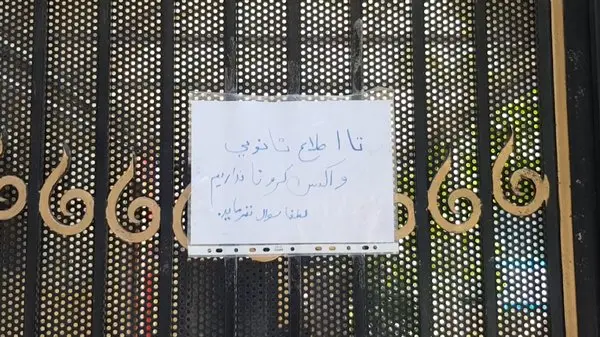 تا اطلاع ثانوی
واکسن کرونا نداریم
لطفا سوال نفرمایید.